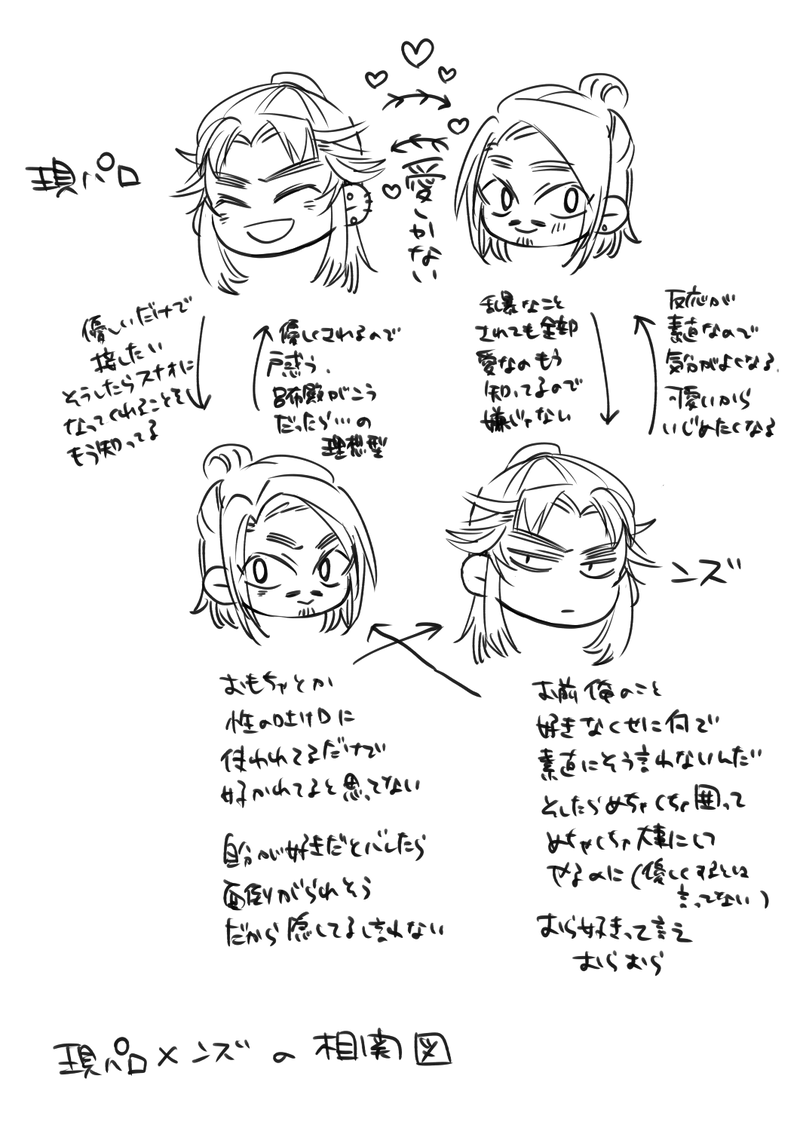 現パロ
愛しかない
優しいだけで
接したい
そうしたらスナオに
なってくれることを
もう知ってる
優しくされるので
戸惑う.
呂布殿がこう
だったら…の
理想型
乱暴なこと
されても全部
愛なのもう
知ってるので
嫌じゃない
反応が
素直なので
気分がよくなる.
可愛いから
いじめたくなる
ンズ
おもちゃとか
性のはけ口に
使われてるだけで
好かれてると思ってない
自分が好きだとバレたら
面倒がられそう
だから隠してるし言わない
お前俺のこと
好きなくせに何で
素直にそう言わないんだ
としたらめちゃくちゃ囲って
めちゃくちゃ大事にして
やるのに(優しくするとは
言ってない)
おら好きって言え
おらおら
現パロ×ンズの相関図